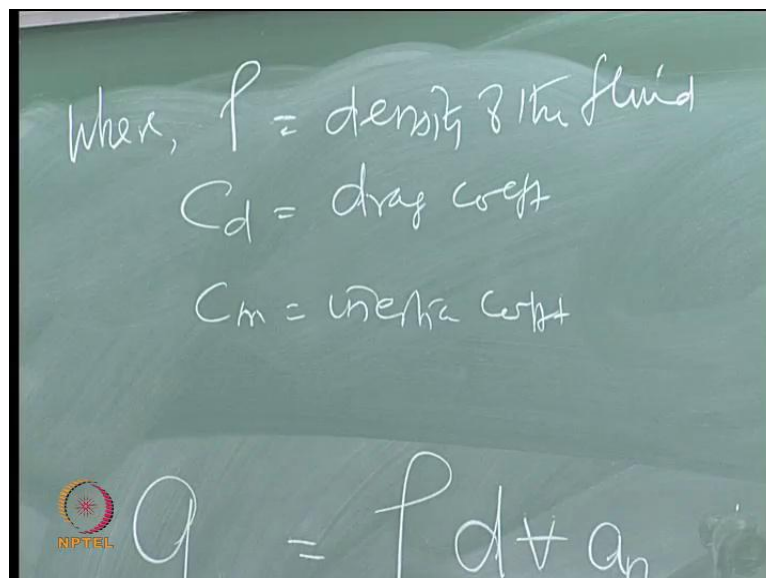 where, ρ = density of the fluid
Cd = drag coefft
Cm = inertia coefft
NPTEL
q = ρ d ∀ an